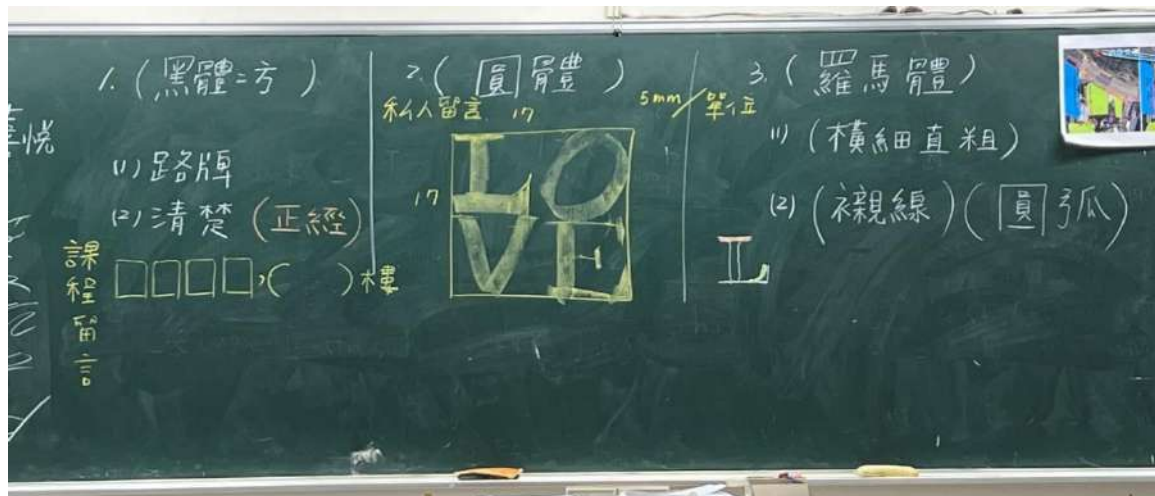 喜悅
1.(黑體=方)
(1)路牌
(2)清楚(正經)
課程留言
□□□□,( )樓
2.(圓體)
私人留言 17
17
LO
VE
5mm/單位
3.(羅馬體)
(1)(橫細直粗)
(2)(襯線)(圓弧)
L